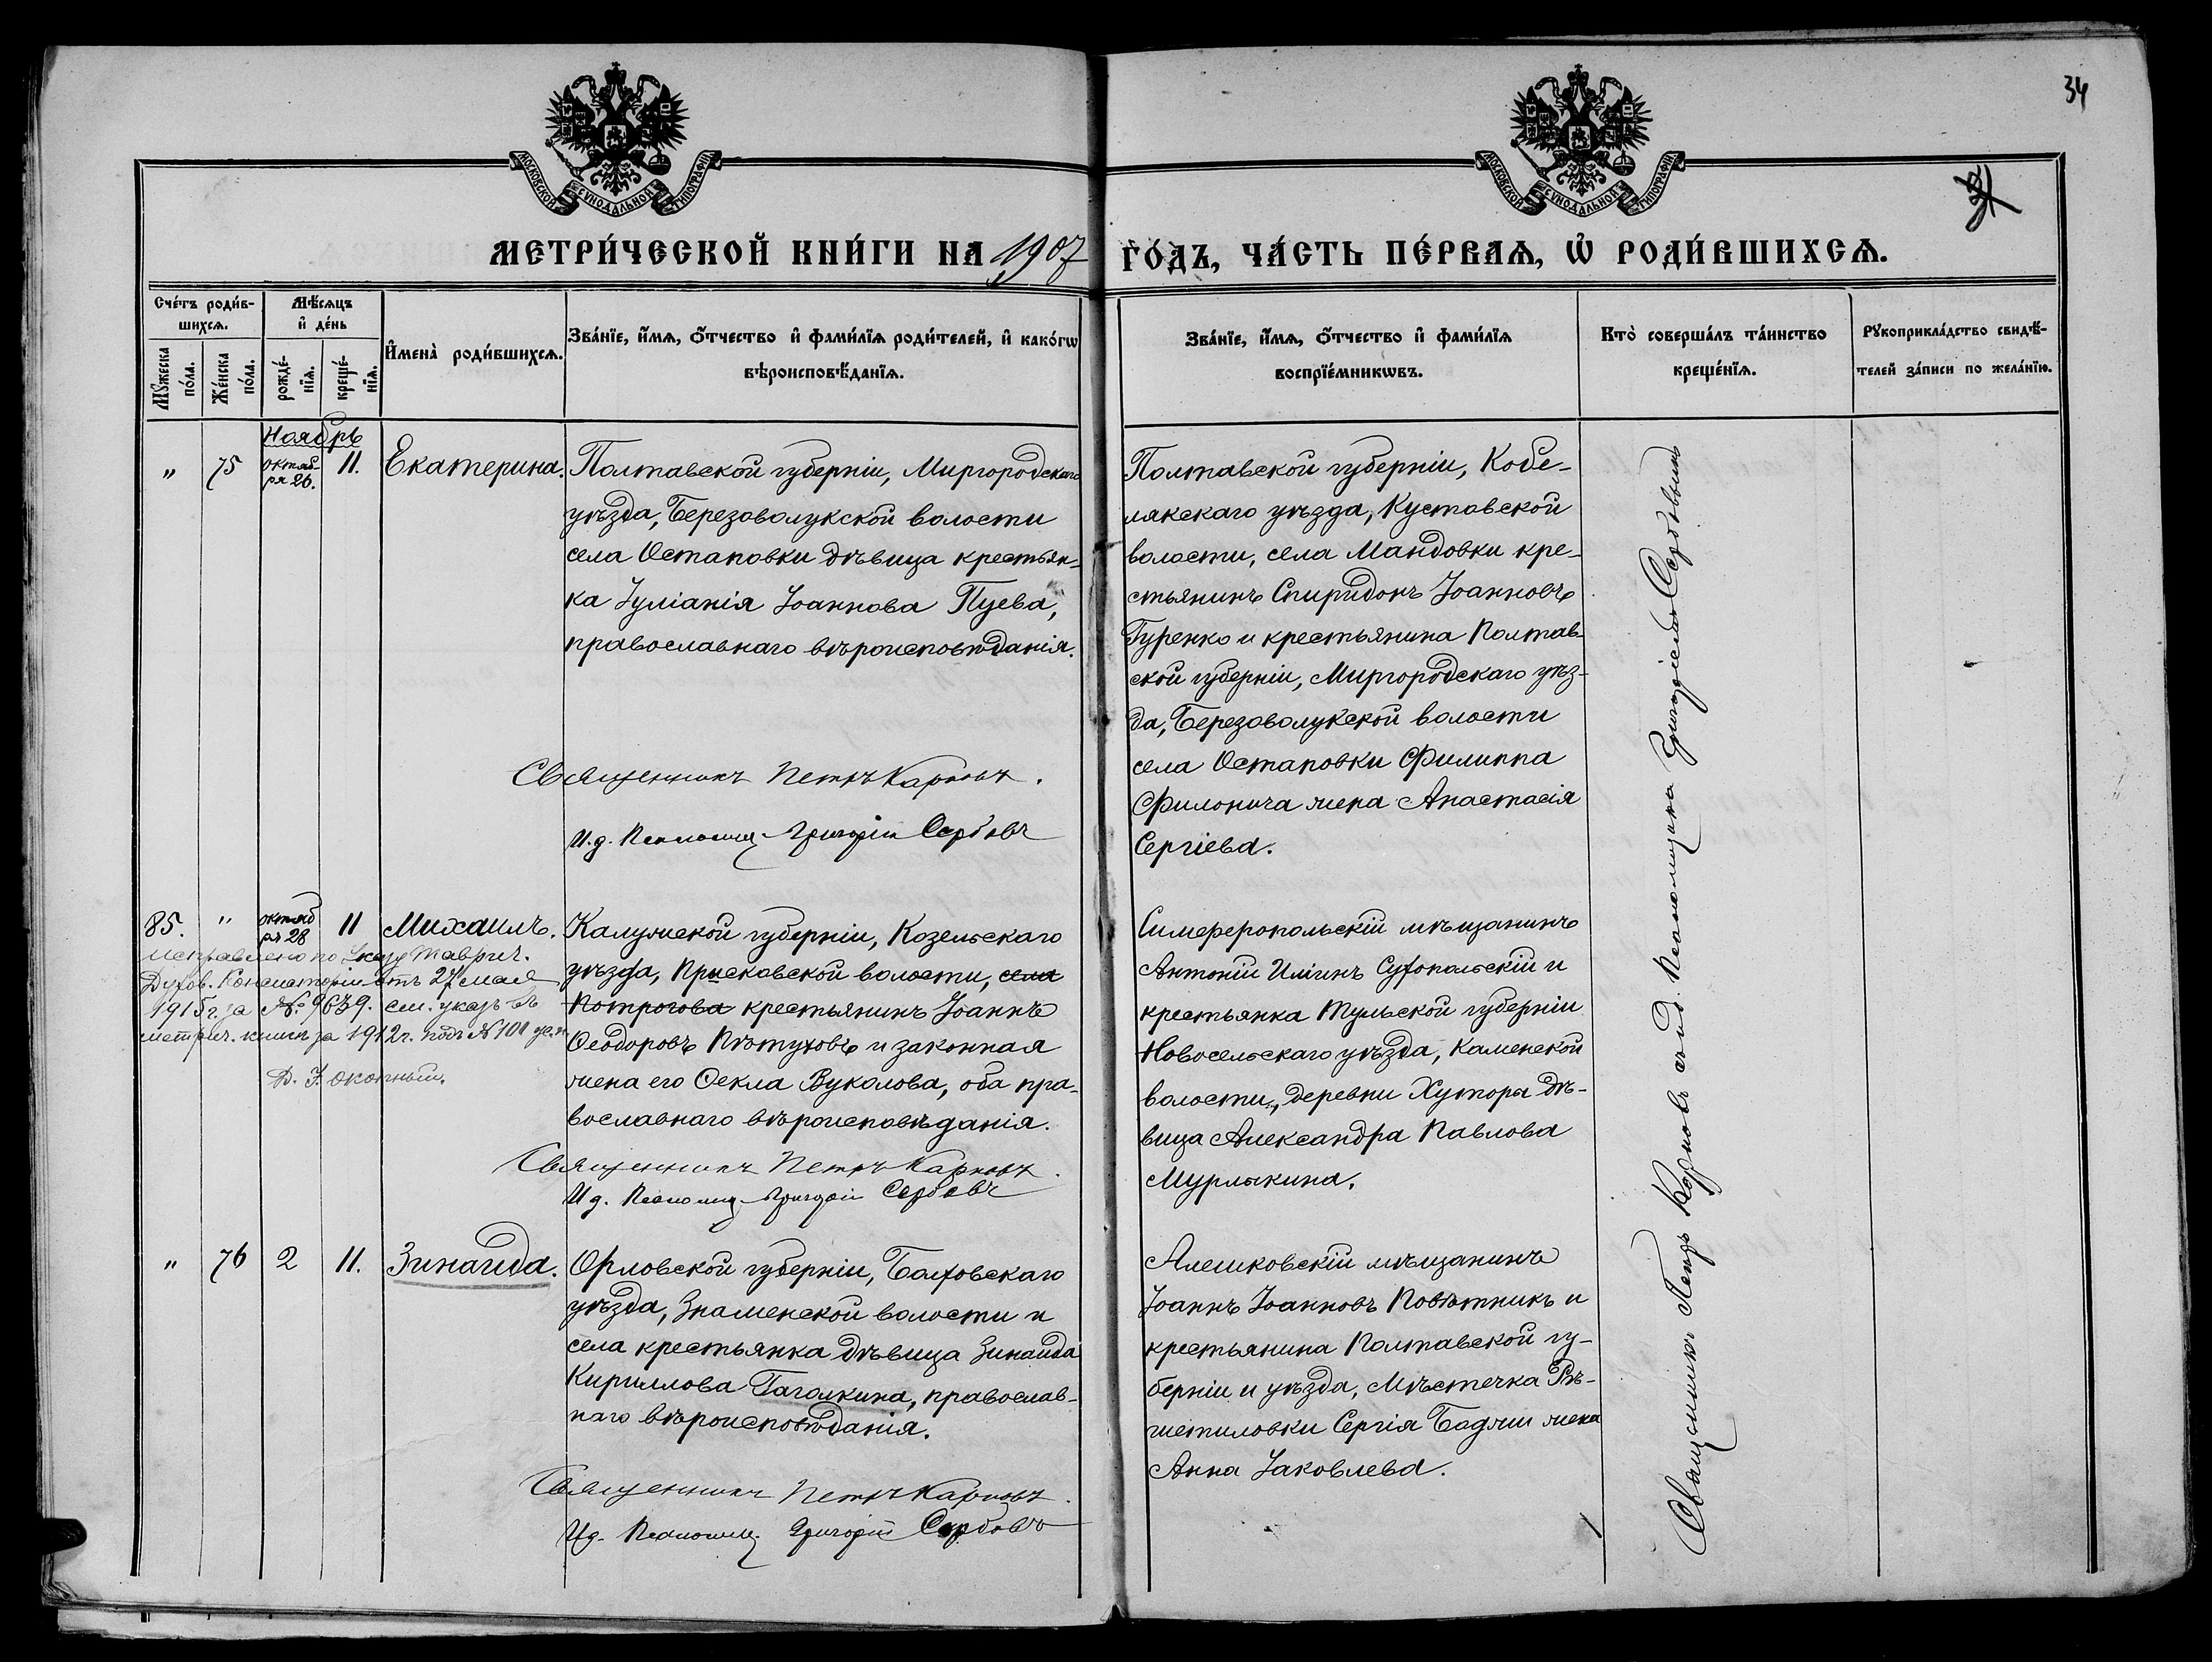 34
МОСКОВСКОЙ СУНОДАЛЬНОЙ ТИПОГРАФІИ
МОСКОВСКОЙ СУНОДАЛЬНОЙ ТИПОГРАФІИ
МЕТРИ́ЧЕСКОЙ КНИ́ГИ НА 1907 ГО́ДЪ, ЧА́СТЬ ПЕ́РВАѦ, Ѡ҆ РОДИ́ВШИХСѦ.
Сче́тъ роди́в-
шихсѧ.
Мꙋ́жеска
по́ла.
Же́нска
по́ла.
Мѣ́сѧцъ
и҆ де́нь
рожде́-
нїѧ.
креще́-
нїѧ.
И҆мена̀ роди́вшихсѧ.
Зва́нїе, и҆́мѧ, ѻ҆́тчество и҆ фами́лїѧ роди́телей, и҆ како́гѡ
вѣроисповѣ́данїѧ.
Зва́нїе, и҆́мѧ, ѻ҆́тчество и҆ фами́лїѧ
воспрїе́мникѡвъ.
Кто̀ соверша́лъ та́инство
креще́нїѧ.
Рꙋкоприкла́дство свидѣ́-
телей за́писи по жела́нїю.
Ноябрь
" 75 октяб-
ря 26. 11. Екатерина.
Полтавской губерніи, Миргородскаго
уѣзда, Березоволукской волости
села Остаповки дѣвица крестьян-
ка Іуліанія Іоаннова Пуева,
православнаго вѣроисповѣданія.
Священникъ Петръ Карповъ.
И.д. Псаломщ. Григорій Сербовъ
Полтавской губерніи, Кобе-
лякскаго уѣзда, Кустовской
волости, села Мандовки кре-
стьянинъ Спиридонъ Іоанновъ
Гуренко и крестьянина Полтав-
ской губерніи, Миргородскаго уѣз-
да, Березоволукской волости
села Остаповки Филиппа
Филонича жена Анастасія
Сергіева.
85. " октяб
ря 28 11 Михаилъ.
Исправлено по Указу Таврич.
Духов. Консисторіи отъ 27 мая
1915 г. за № 9639. см. указъ въ
метрич. книгѣ за 1912 г. подъ № 101
Калужской губерніи, Козельскаго
уѣзда, Прысковской волости, села
Потрогова крестьянинъ Іоаннъ
Ѳеодоровъ Пѣтуховъ и законная
жена его Ѳекла Вуколова, оба пра-
вославнаго вѣроисповѣданія.
Священникъ Петръ Карповъ.
И.д. Псаломщ. Григорій Сербовъ
Симферопольскій мѣщанинъ
Антоній Ильинъ Сухопольскій и
крестьянка Тульской губерніи
Новосельскаго уѣзда, Каменской
волости, деревни Хутора дѣ-
вица Александра Павлова
Мурлыкина.
" 76 2 11. Зинаида.
Орловской губерніи, Болховскаго
уѣзда, Знаменской волости и
села крестьянка дѣвица Зинаида
Кириллова Гаголкина, православ-
наго вѣроисповѣданія.
Священникъ Петръ Карповъ.
И.д. Псаломщ. Григорій Сербовъ
Алешковскій мѣщанинъ
Іоаннъ Іоанновъ Повѣтникъ и
крестьянина Полтавской гу-
берніи и уѣзда, мѣстечка Рѣ-
шетиловки Сергія Бадяи жена
Анна Іаковлева.
Священникъ Петръ Карповъ съ и.д. Псаломщика Григоріемъ Сербовымъ